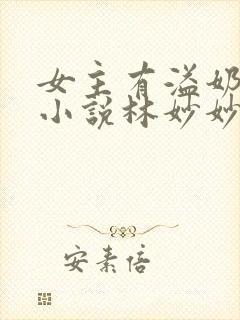 女主有溢奶
小说林妙妙
安素倍